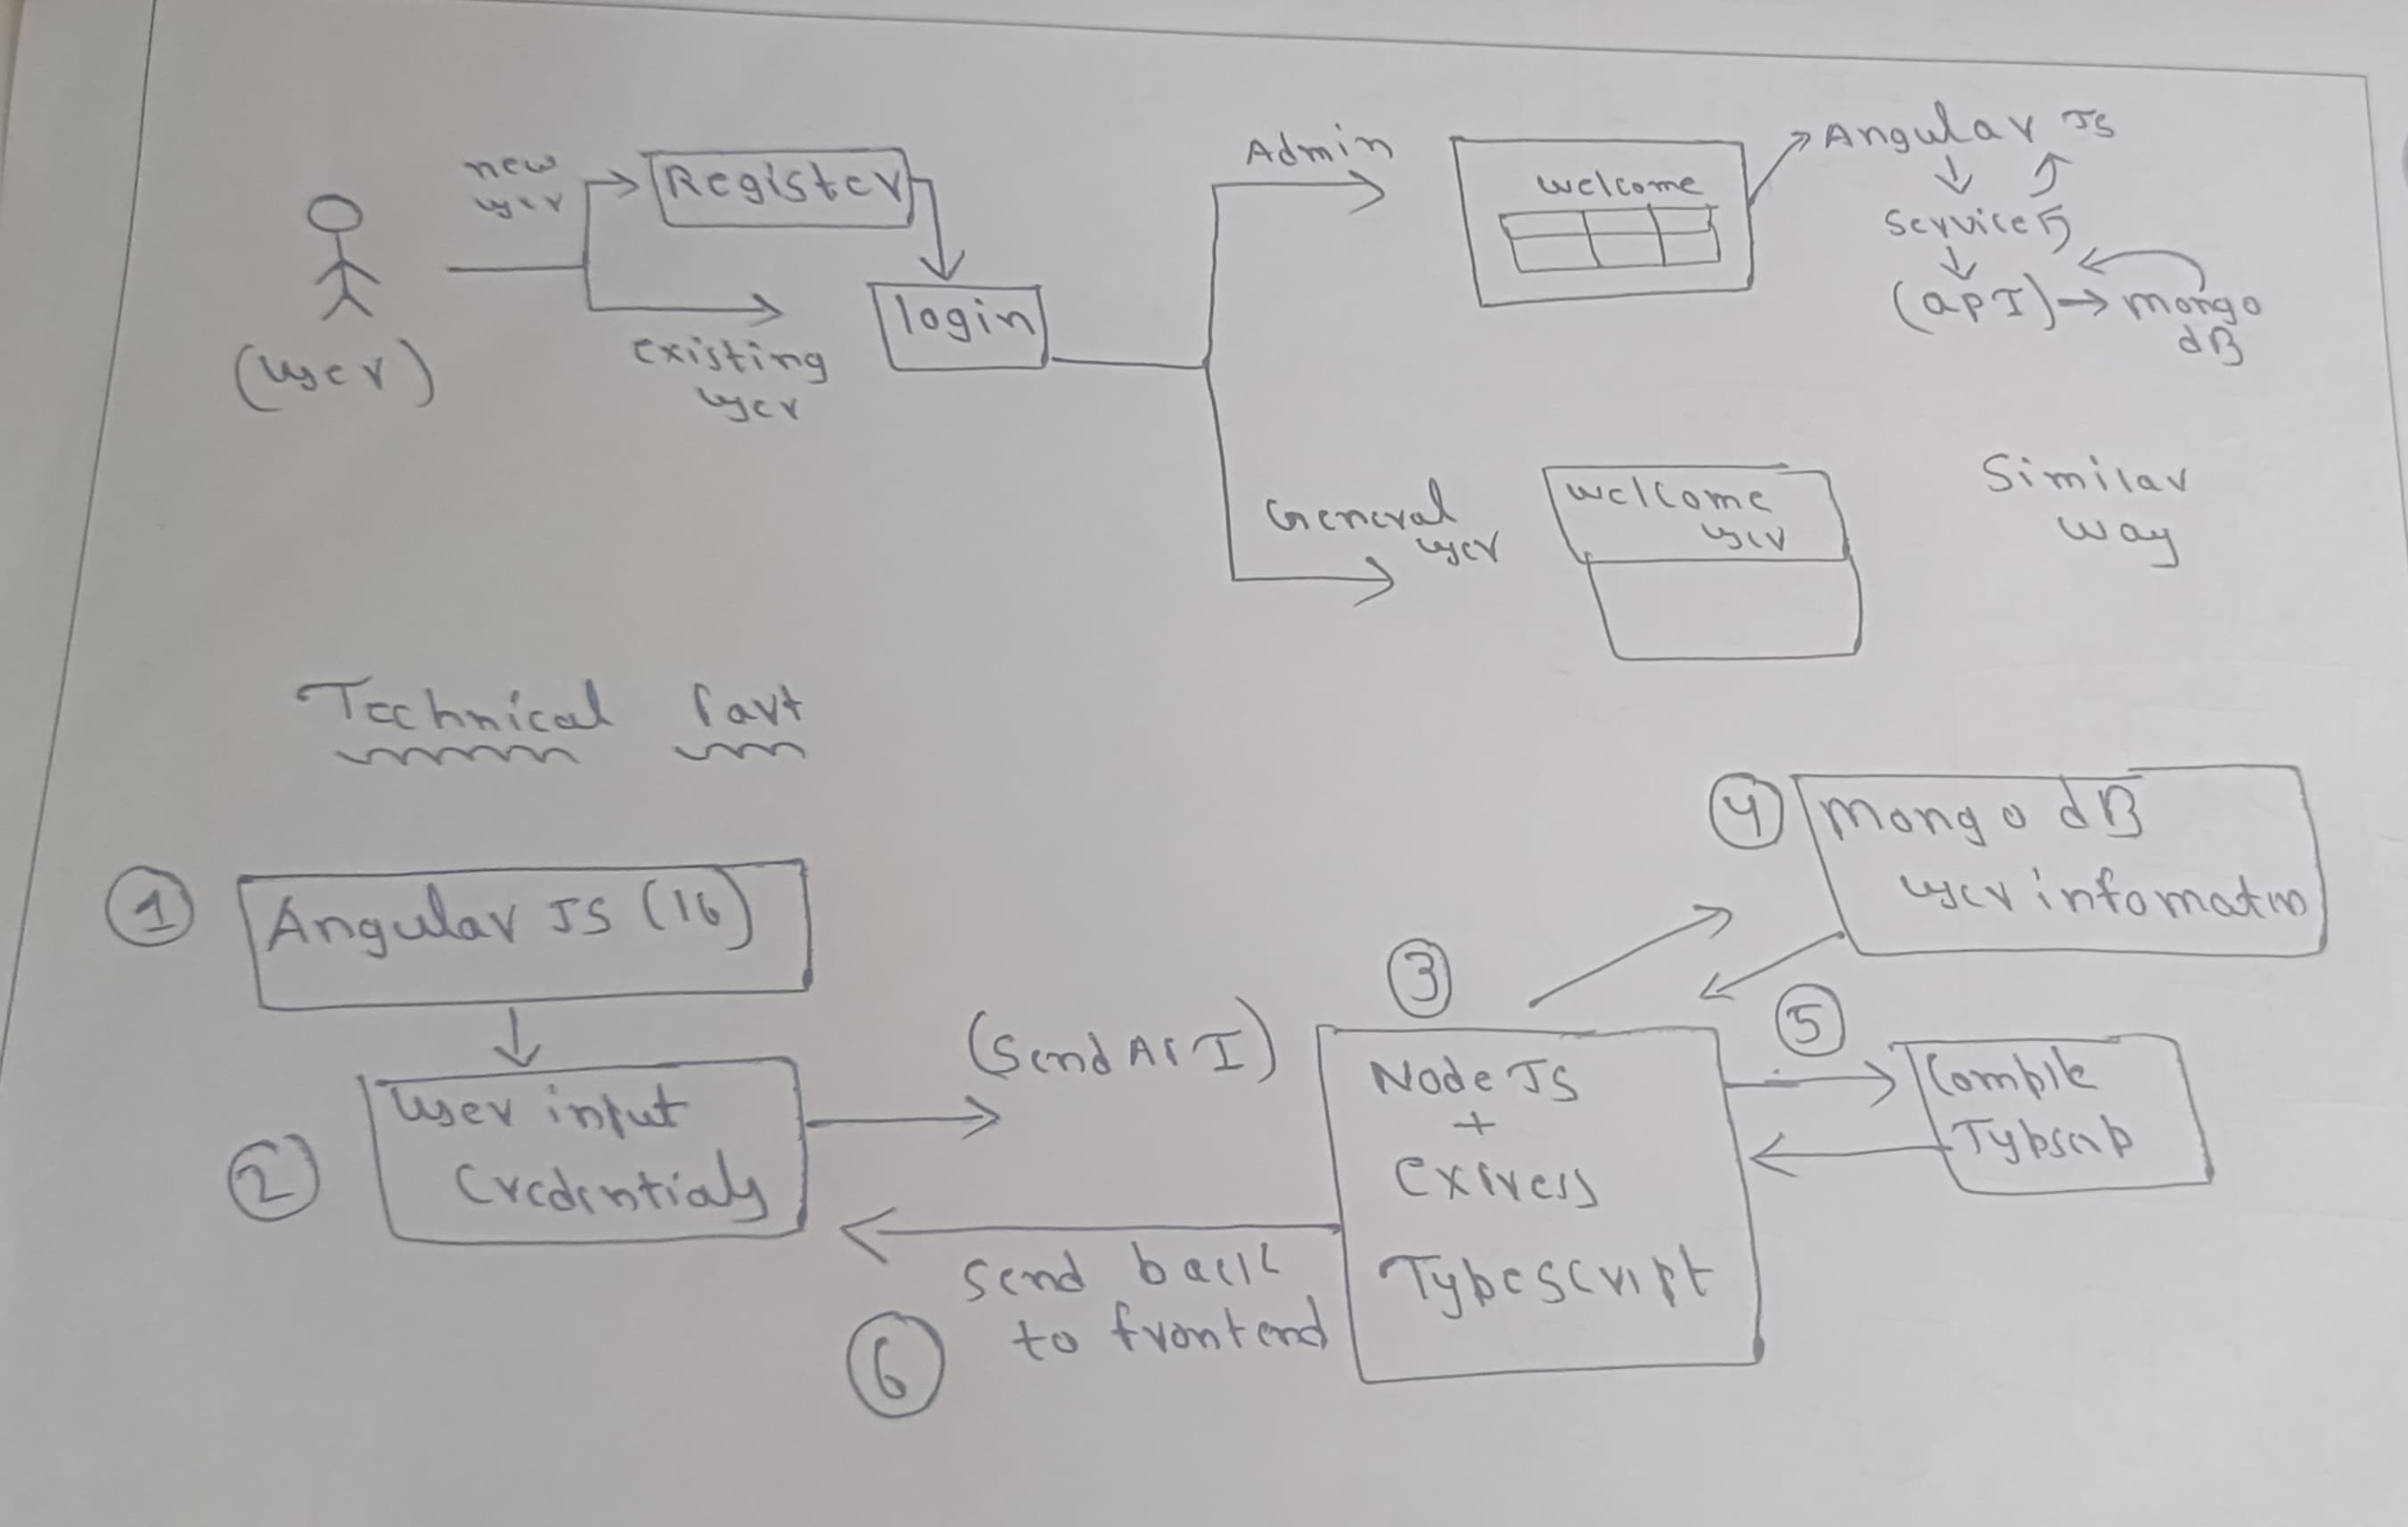 new
user
Register
(user)
existing
user
login
Admin
welcome
Angular JS
Service
(apI)
mongo
dB
General
user
welcome
user
Similar
way
Technical Part
1
Angular JS (16)
2
User input
Credentials
(Send API)
3
Node JS
+
Express
Typescript
4
Mongo dB
user infomation
5
Compile
6
Send back
to frontend